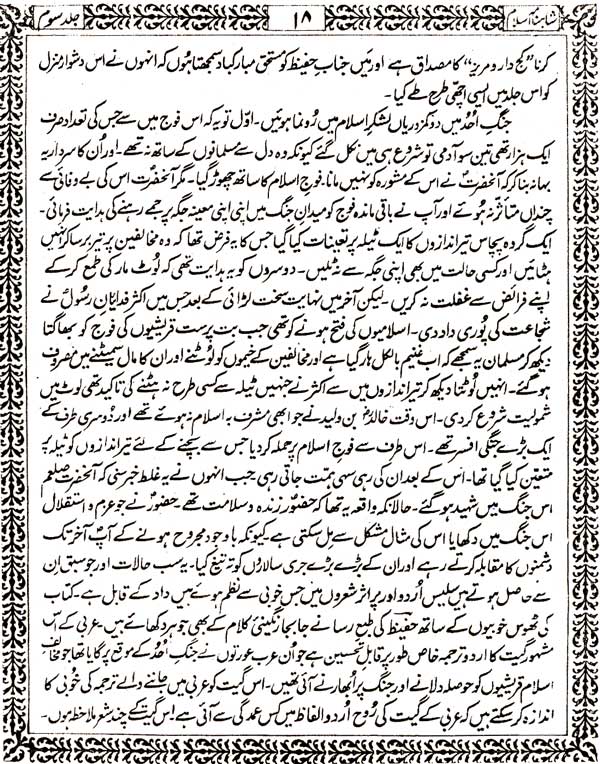 شاہنامہ اسلام ۱۸ جلد سوم
کرنا "کج دار و مریز" کا مصداق ہے اور میں جناب حفیظ کو مستحق مبارکباد سمجھتا ہوں کہ انہوں نے اس دشوار منزل
کو اس جلد میں ایسی اچھی طرح طے کیا۔
جنگ اُحد میں دو کمزوریاں لشکر اسلام میں رُونما ہوئیں۔ اوّل تو یہ کہ اس فوج میں سے جس کی تعداد صرف
ایک ہزار تھی تین سو آدمی تو شروع ہی میں نکل گئے کیونکہ وہ دل سے مسلمانوں کے ساتھ نہ تھے۔ اور اُن کا سردار یہ
بہانہ بنا کر کہ آنحضرتؐ نے اس کے مشورہ کو نہیں مانا، فوج اسلام کا ساتھ چھوڑ گیا۔ مگر آنحضرتؐ اس کی بے وفائی سے
چنداں متاثر نہ ہوئے اور آپ نے باقی ماندہ فوج کو میدان جنگ میں اپنی اپنی معینہ جگہ پر جمے رہنے کی ہدایت فرمائی۔
ایک گروہ پچاس تیر اندازوں کا ایک ٹیلہ پر تعینات کیا گیا جس کا یہ فرض تھا کہ وہ مخالفین پر تیر برسا کر انہیں
ہٹائیں اور کسی حالت میں بھی اپنی جگہ سے نہ ٹلیں۔ دوسروں کو یہ ہدایت تھی کہ لُوٹ مار کی طمع کر کے
اپنے فرائض سے غفلت نہ کریں۔ لیکن آخر میں نہایت سخت لڑائی کے بعد جس میں اکثر فدایان رسولؐ نے
شجاعت کی پُوری داد دی۔ اسلامیوں کی فتح ہونے کو تھی جب بت پرست قریشیوں کی فوج کو بھاگتا
دیکھ کر مسلمان یہ سمجھے کہ اب غنیم بالکل ہار گیا ہے اور مخالفین کے خیموں کو لُوٹنے اور ان کا مال سمیٹنے میں مصروف
ہو گئے۔ انہیں لُوٹتا دیکھ کر تیر اندازوں میں سے اکثر نے جنہیں ٹیلہ سے کسی طرح نہ ہٹنے کی تاکید تھی لوٹ میں
شمولیت شروع کر دی۔ اس وقت خالدؓ بن ولید نے جو ابھی مشرف بہ اسلام نہ ہوئے تھے اور دُوسری طرف کے
ایک بڑے جنگی افسر تھے۔ اس طرف سے فوج اسلام پر حملہ کر دیا جس سے بچنے کے لئے تیر اندازوں کو ٹیلہ پر
متعین کیا گیا تھا۔ اس کے بعد ان کی رہی سہی ہمت جاتی رہی جب انہوں نے یہ غلط خبر سنی کہ آنحضرت صلعم
اس جنگ میں شہید ہو گئے۔ حالانکہ واقعہ یہ تھا کہ حضورؐ زندہ و سلامت تھے۔ حضورؐ نے جو عزم و استقلال
اس جنگ میں دکھایا اس کی مثال مشکل سے مل سکتی ہے کیونکہ باوجود مجروح ہونے کے آپؐ آخر تک
دشمنوں کا مقابلہ کرتے رہے اور ان کے بڑے بڑے جری سالاروں کو تہ تیغ کیا۔ یہ سب حالات اور جو سبق ان
سے حاصل ہوتے ہیں سلیس اُردو اور پر اثر شعروں میں جس خوبی سے نظم ہوئے ہیں داد کے قابل ہے۔ کتاب
کی ٹھوس خوبیوں کے ساتھ حفیظ کی طبع رسا نے جا بجا رنگینیٔ کلام کے بھی جوہر دکھائے ہیں۔ عربی کے اس
مشہور گیت کا اردو ترجمہ خاص طور پر قابل تحسین ہے جو اُن عرب عورتوں نے جنگ اُحد کے موقع پر گایا تھا جو مخالف
اسلام قریشیوں کو حوصلہ دلانے اور جنگ پر اُبھارنے آئی تھیں۔ اس گیت کو عربی میں جاننے والے ترجمہ کی خوبی کا
اندازہ کر سکتے ہیں کہ عربی کے گیت کی رُوح اُردو الفاظ میں کس عمدگی سے آئی ہے اس گیت کے چند شعر ملاحظہ ہوں۔